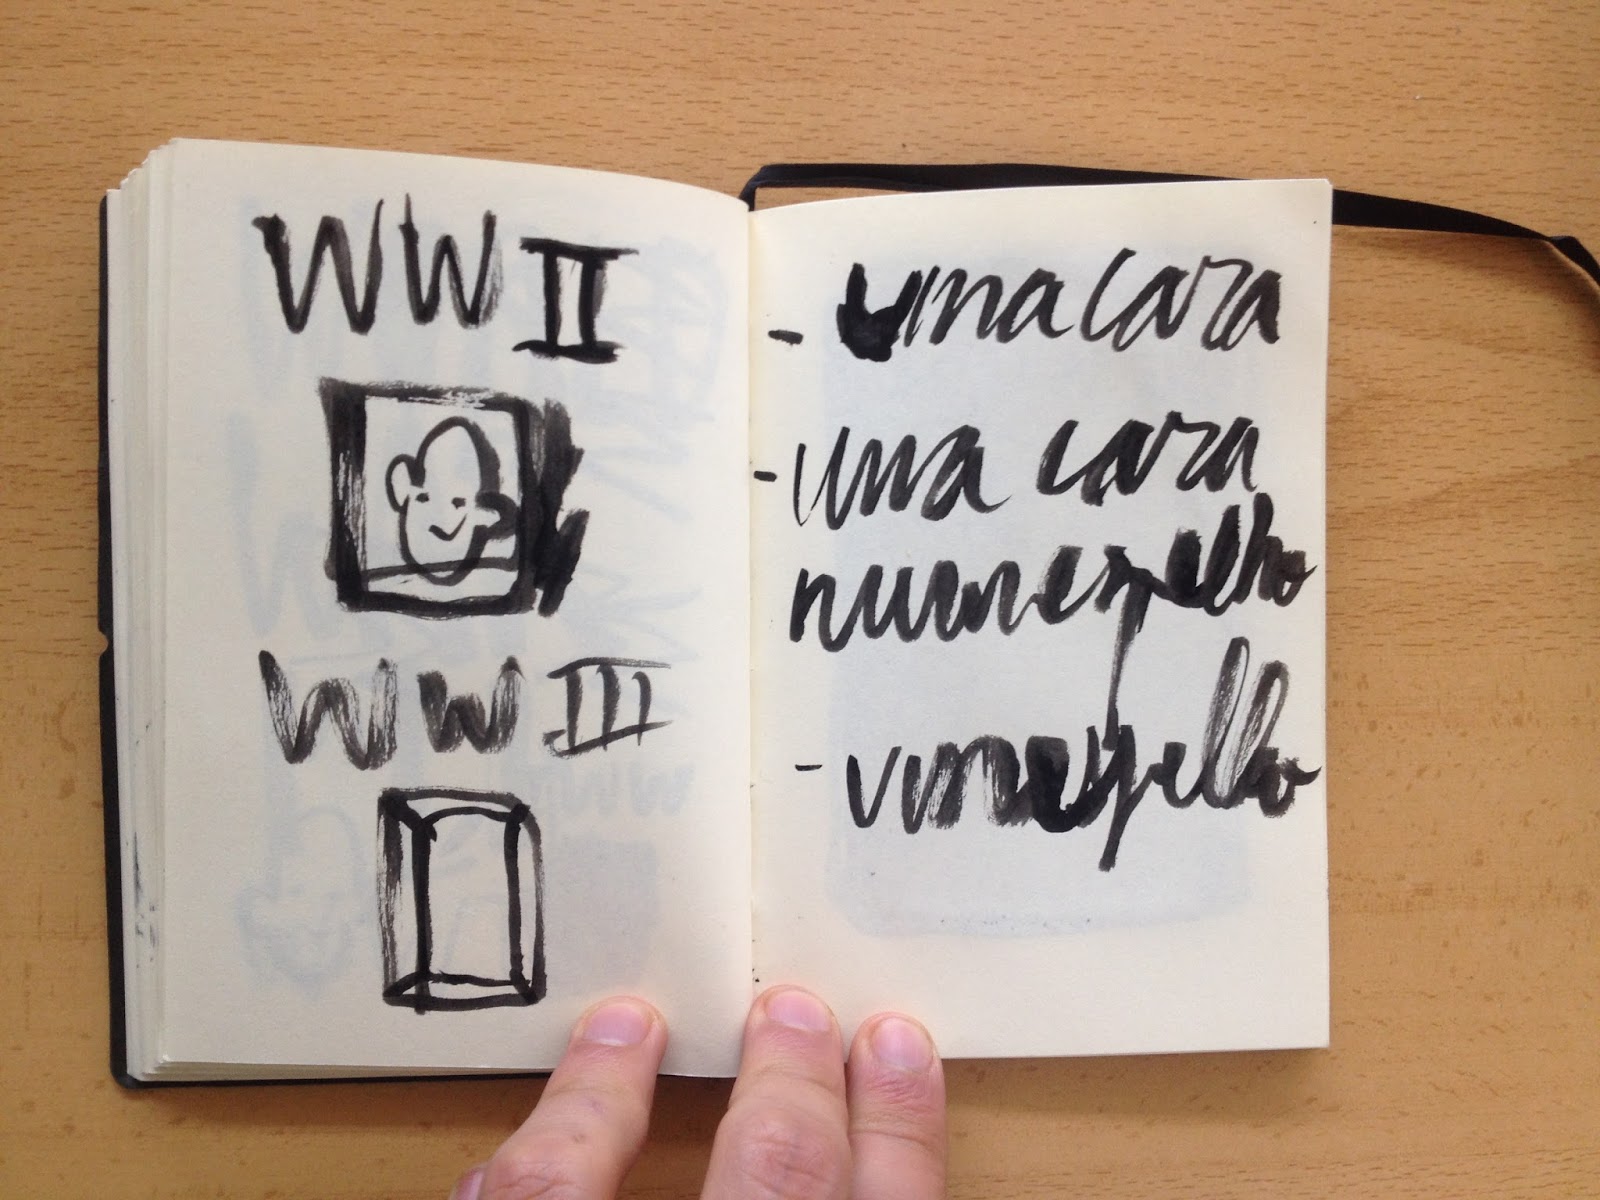 WW II
WW III
- uma cara
- uma cara
num espelho
- um espelho